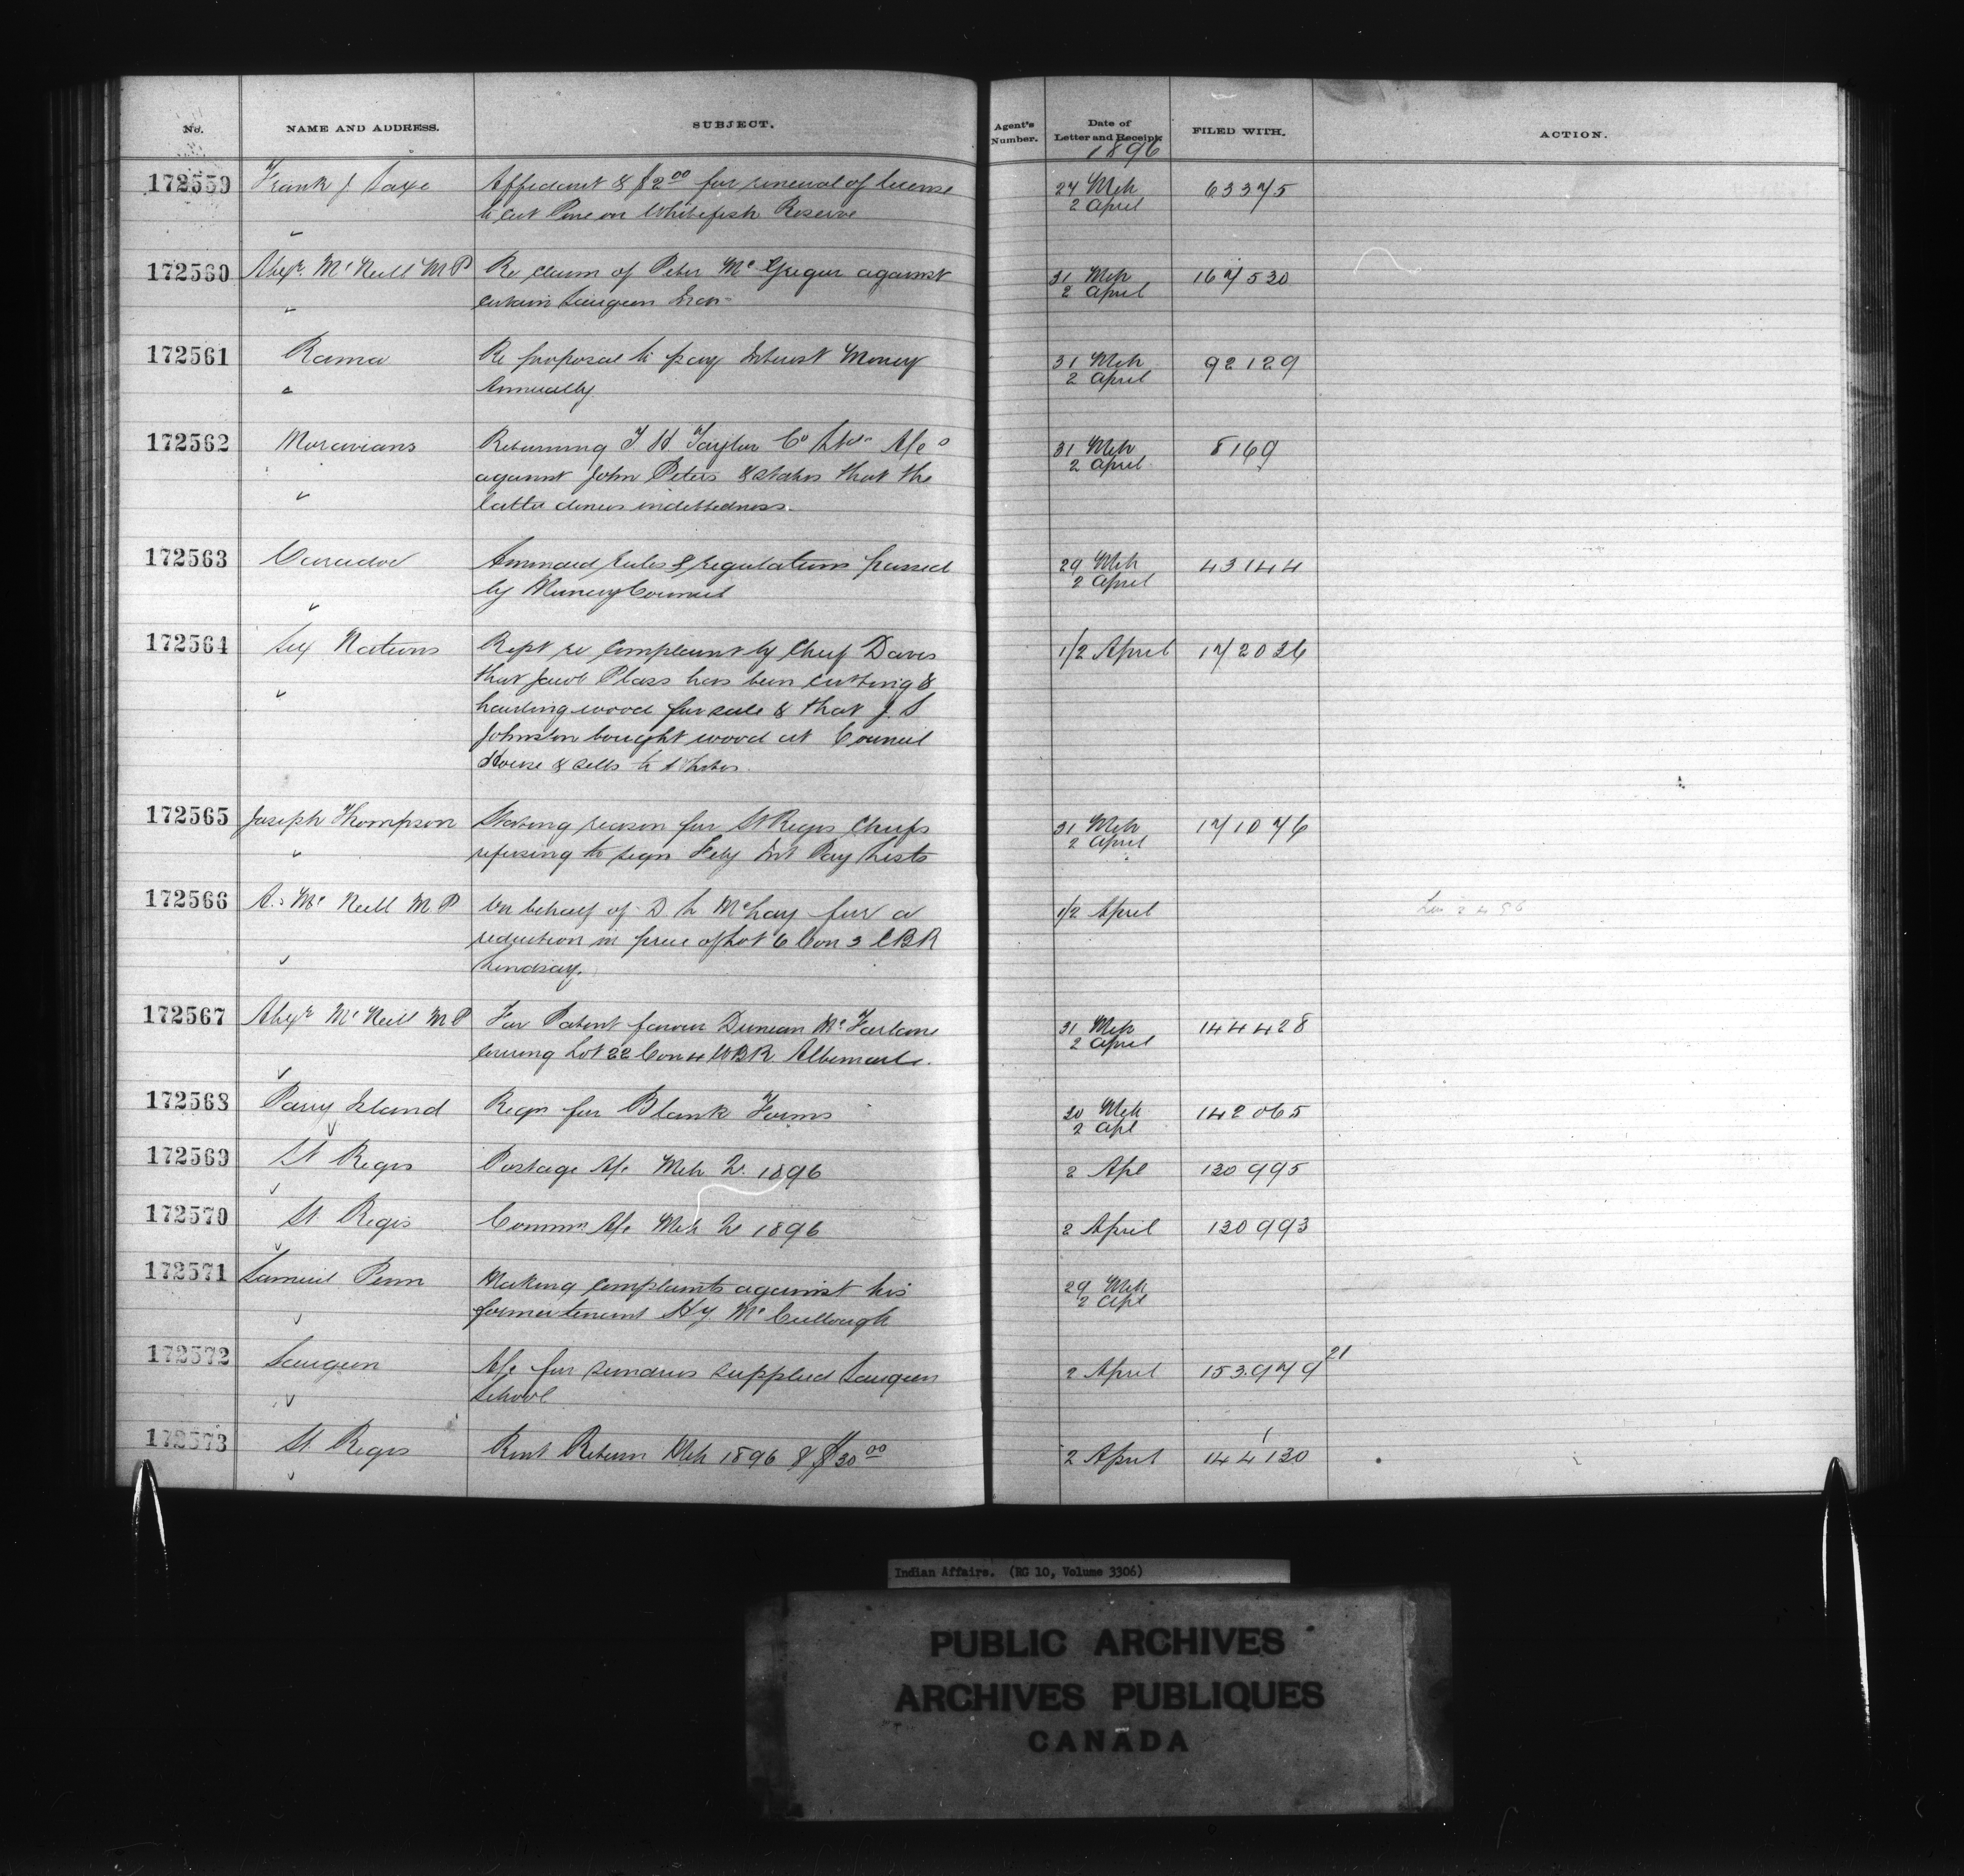 No. NAME AND ADDRESS. SUBJECT. Agent's Number. Date of Letter and Receipt. FILED WITH. ACTION.
1896
172559 Frank J Saxe Affidavit & $2.00 for renewal of license 27 Mch 63375
to cut Pine on Whitefish Reserve 2 April
172560 Alexr. McNeill MP Re claim of Peter McGregor against 31 Mch 167530
certain Saugeen Inds 2 April
172561 Rama Re proposal to pay Interest Money 31 Mch 92129
Annually 2 April
172562 Moravians Returning T H Taylor Co Ltd A/c 31 Mch 8169
against John Peters & states that the 2 April
latter denies indebtedness.
172563 Caradoc Ammend rules & regulations passed 29 Mch 43144
by Muncey Council 2 April
172564 Six Nations Rept re complaint by Chief Davis 1/2 April 172026
that Jacob Plass has been cutting &
hauling wood for sale & that J. S
Johnston bought wood at Council
House & sells to Whites.
172565 Joseph Thompson Stating reason for St Regis Chiefs 31 Mch 171076
refusing to sign Feby Int Pay Lists 2 April
172566 A. McNeill MP On behalf of D L McLay for a 1/2 April
reduction in price of Lot 6 Con 3 EBR
Lindsay.
172567 Alexr McNeill MP For Patent favour Duncan McFarlane 31 Mch 144428
covering Lot 22 Con 4 WBR Albemarle. 2 April
172568 Parry Island Reqn for Blank Forms 30 Mch 142065
2 Apl
172569 St Regis Postage A/c Mch Qr. 1896 2 Apl 130995
172570 St Regis Commn A/c Mch Qr 1896 2 April 130993
172571 Samuel Penn Making complaints against his 29 Mch
former tenant Hy. McCullough 2 Apl
172572 Saugeen A/c for sundries supplied Saugeen 2 April 153979 21
School
172573 St Regis Rent Return Mch 1896 & $30.00 2 April 144130 1
Indian Affairs. (RG 10, Volume 3306)
PUBLIC ARCHIVES
ARCHIVES PUBLIQUES
CANADA